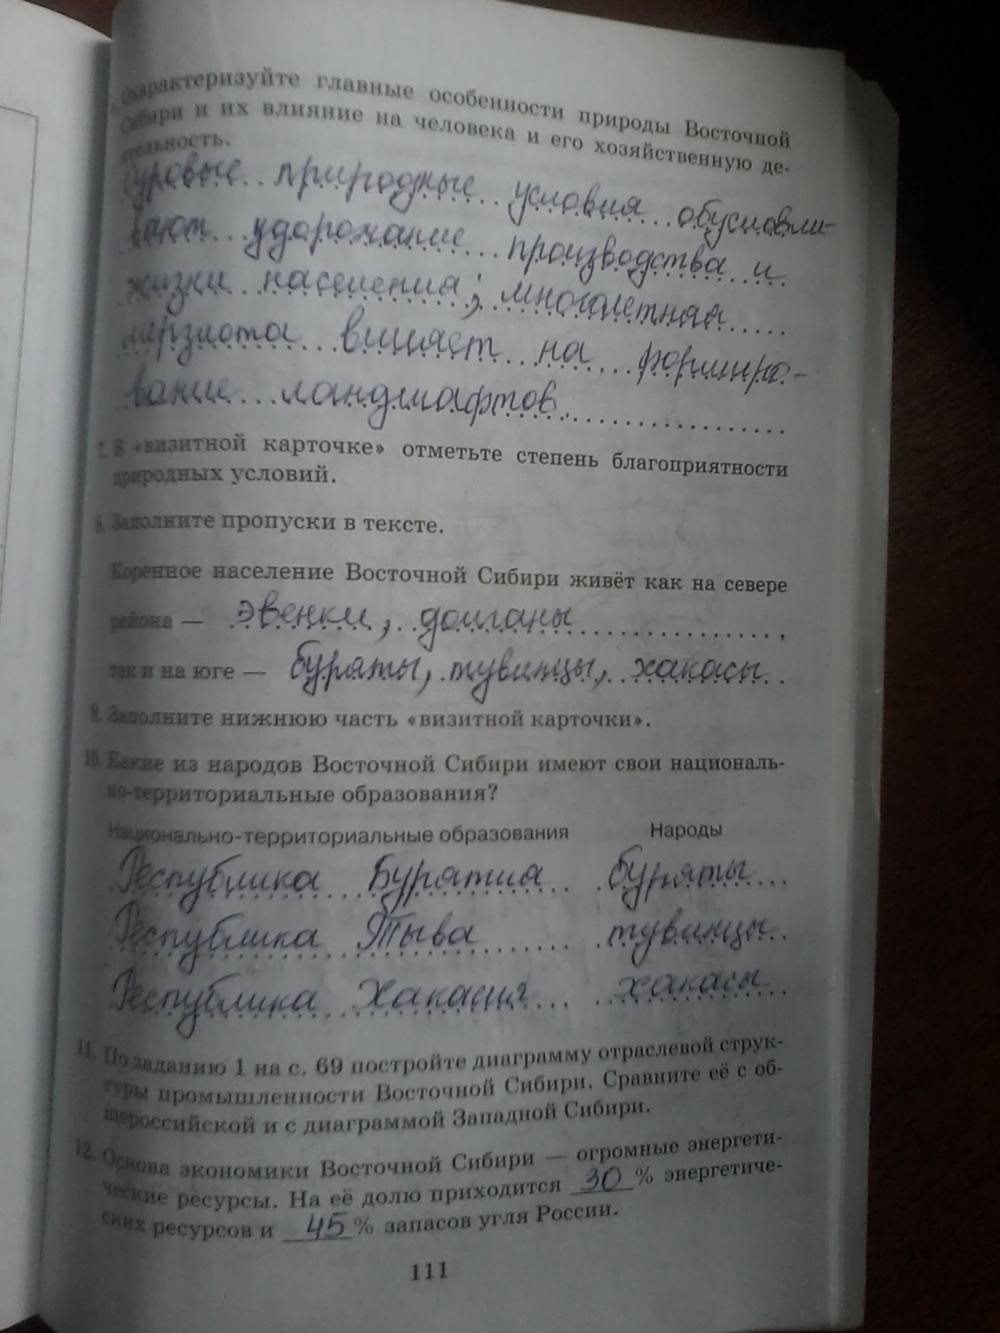 6. Охарактеризуйте главные особенности природы Восточной
Сибири и их влияние на человека и его хозяйственную де-
ятельность.
Суровые природные условия обусловли-
вают удорожание производства и
жизни населения; многолетняя
мерзлота влияет на формиро-
вание ландшафтов.
7. В «визитной карточке» отметьте степень благоприятности
природных условий.
8. Заполните пропуски в тексте.
Коренное население Восточной Сибири живёт как на севере
района — эвенки, долганы,
так и на юге — буряты, тувинцы, хакасы.
9. Заполните нижнюю часть «визитной карточки».
10. Какие из народов Восточной Сибири имеют свои националь-
но-территориальные образования?
Национально-территориальные образования Народы
Республика Бурятия буряты
Республика Тыва тувинцы
Республика Хакасия хакасы
11. По заданию 1 на с. 69 постройте диаграмму отраслевой струк-
туры промышленности Восточной Сибири. Сравните её с об-
щероссийской и с диаграммой Западной Сибири.
12. Основа экономики Восточной Сибири — огромные энергети-
ческие ресурсы. На её долю приходится 30 % энергетиче-
ских ресурсов и 45 % запасов угля России.
111